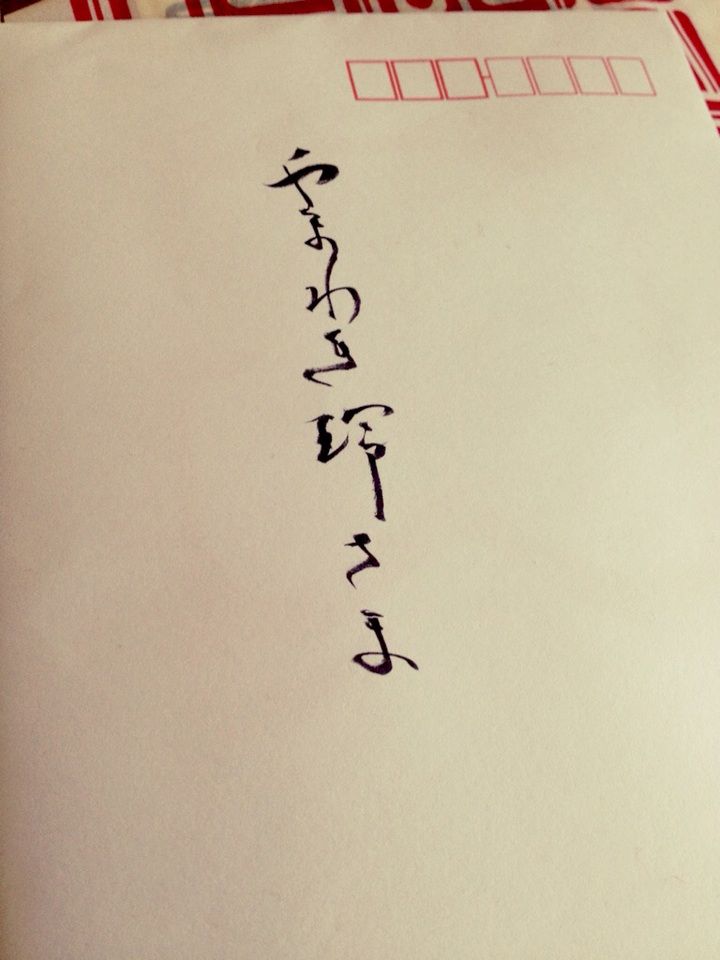 やまわき さま